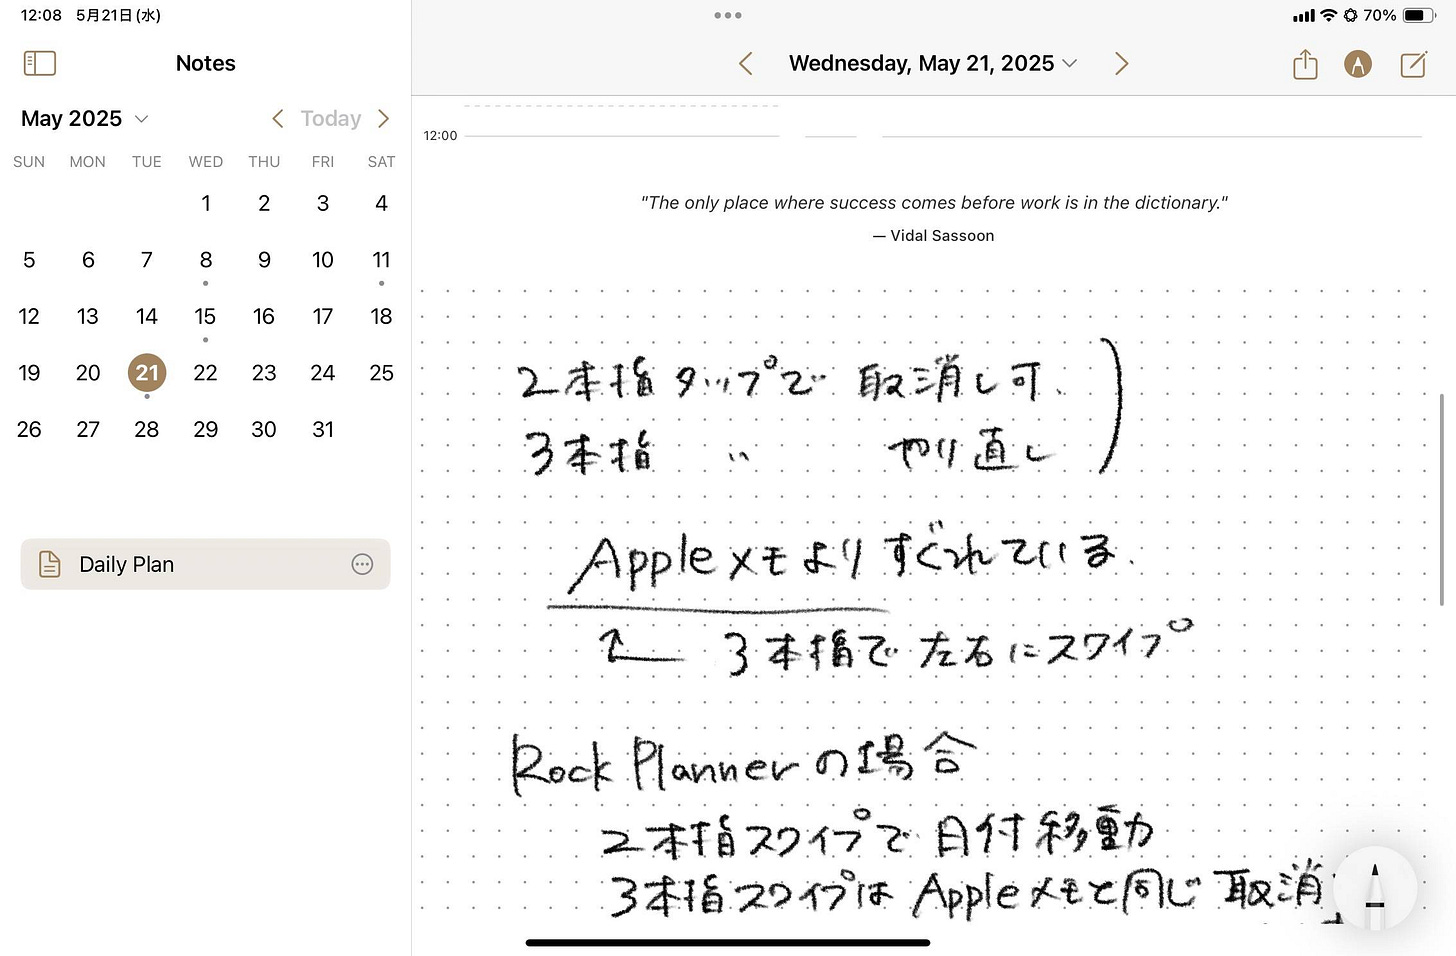 12:08 5月21日(水)
70%
Notes
Wednesday, May 21, 2025
May 2025
Today
SUN MON TUE WED THU FRI SAT
1 2 3 4
5 6 7 8 9 10 11
12 13 14 15 16 17 18
19 20 21 22 23 24 25
26 27 28 29 30 31
Daily Plan
12:00
"The only place where success comes before work is in the dictionary."
— Vidal Sassoon
2本指タップで 取消し可.
3本指 〃 やり直し
Appleメモよりすぐれている.
3本指で左右にスワイプ
Rock Plannerの場合
2本指スワイプで日付移動
3本指スワイプはAppleメモと同じ取消